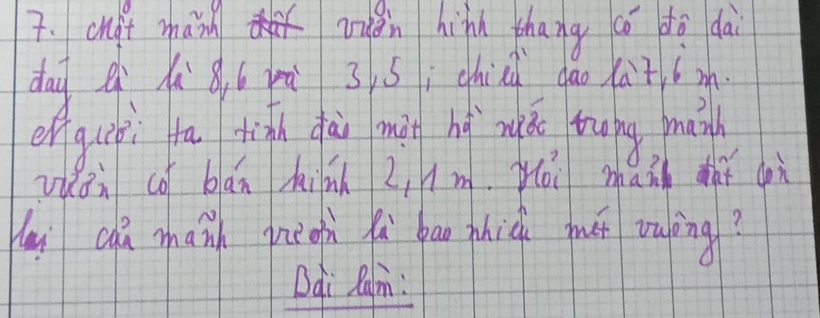 7. Một mảnh đất vườn hình thang có độ dài
đáy là là 8,6 và 3,5 ; chiều cao là 7,6 m.
Người ta tính đào một hồ nước trong mảnh
vườn có bán kính 2,1 m. Hỏi mảnh đất còn
lại của mảnh vườn là bao nhiêu mét vuông?
Bài làm: